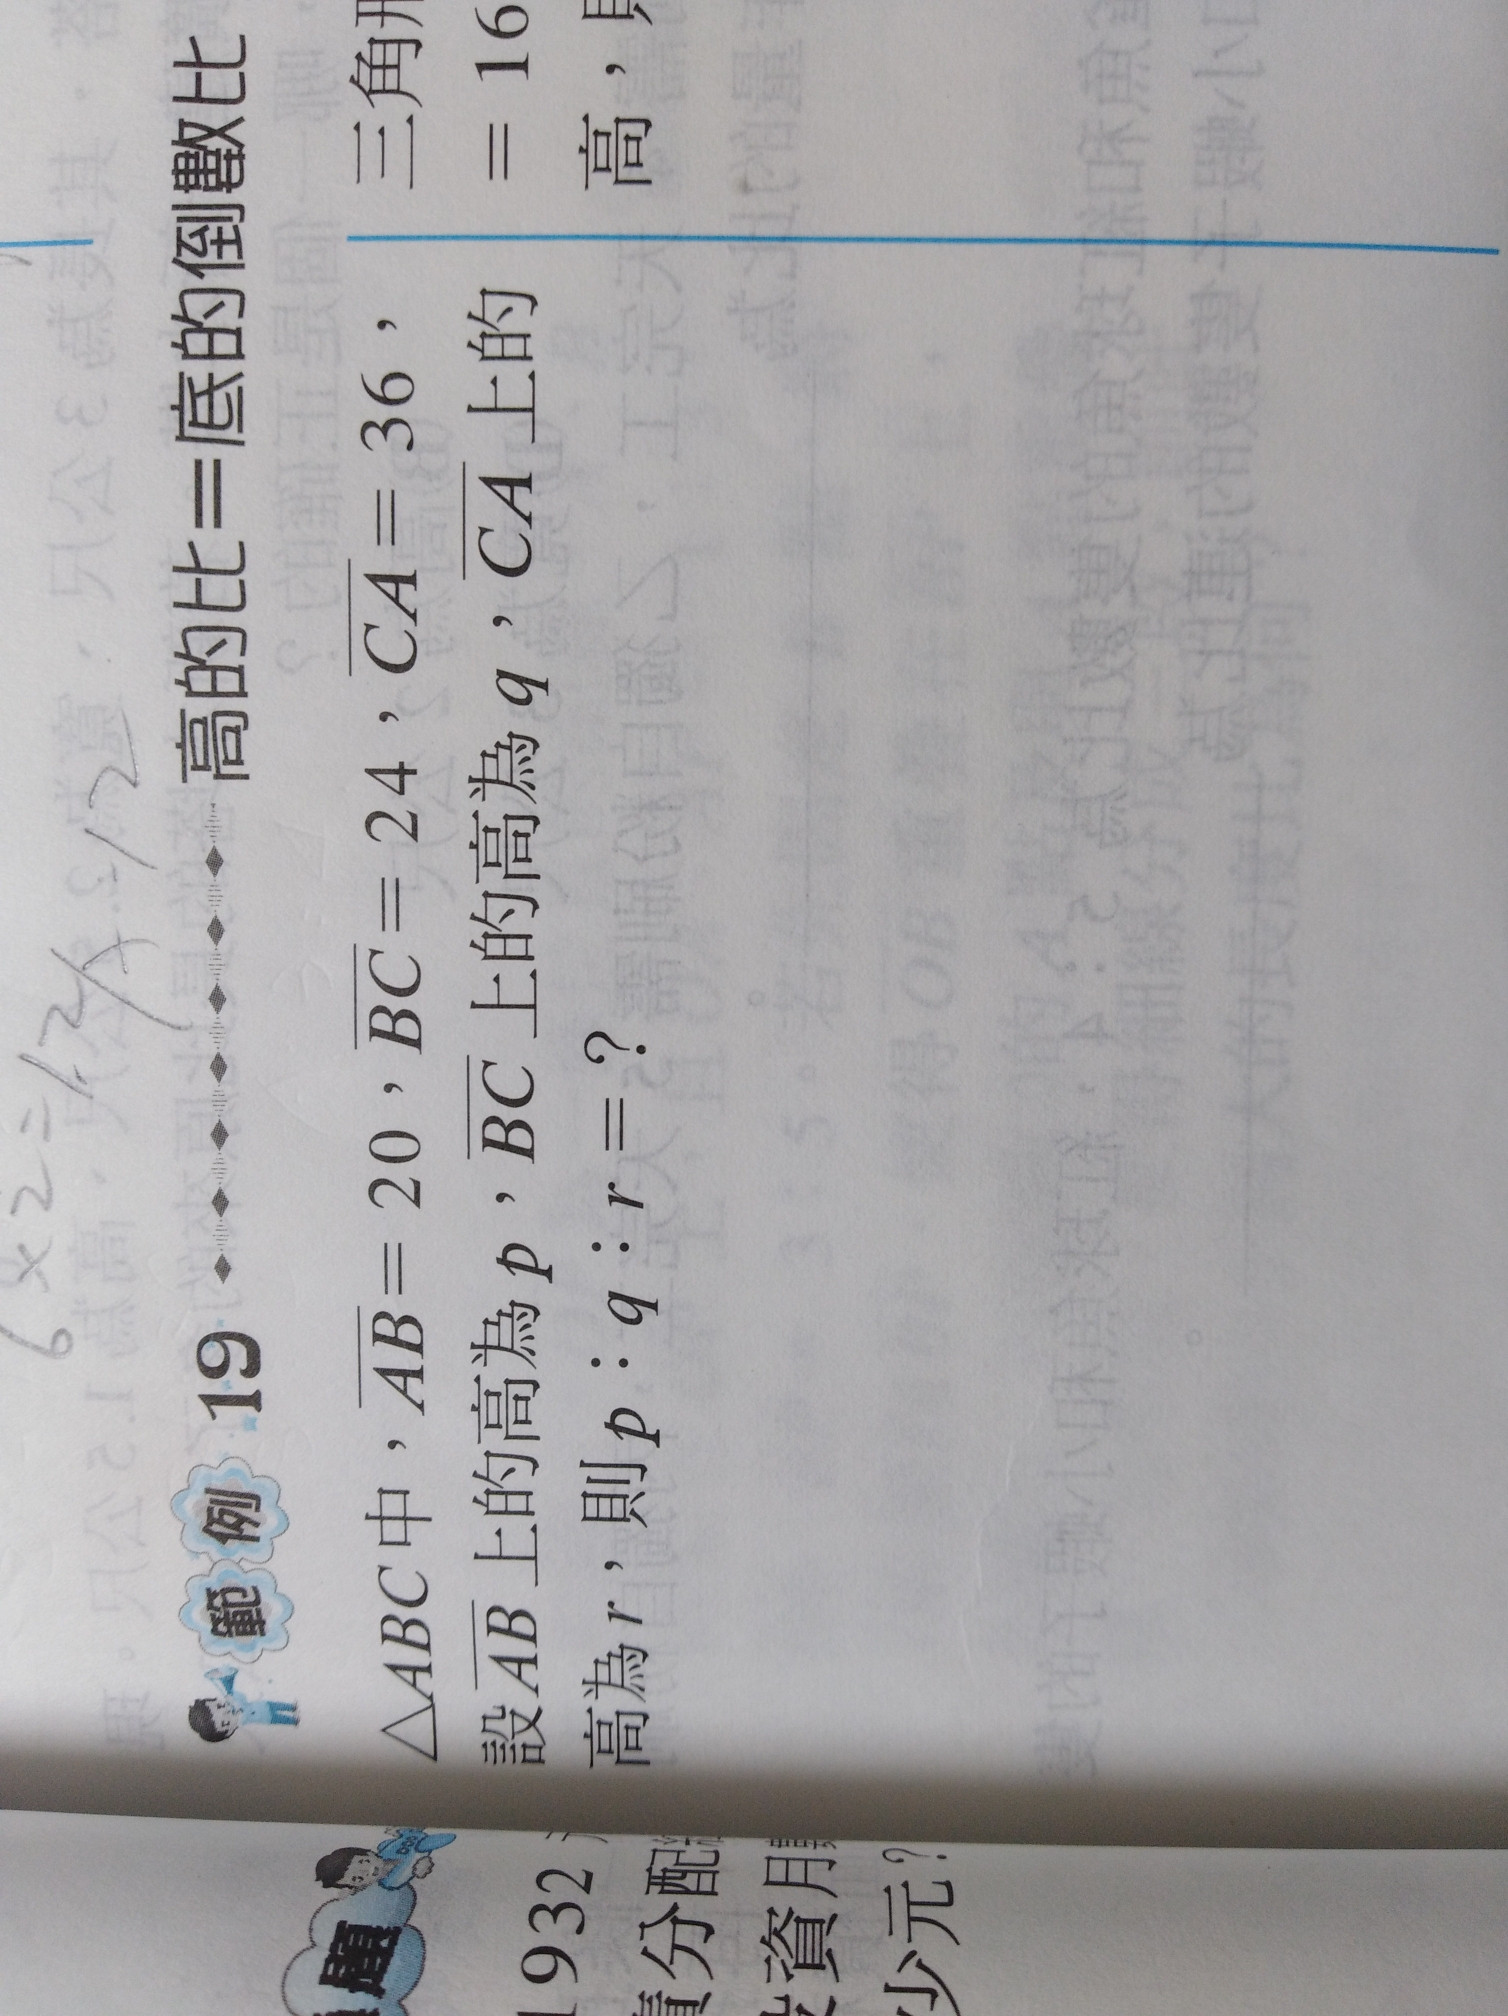 6×2=12/x 12
範例 19 高的比=底的倒數比
△ABC中，AB=20，BC=24，CA=36，
設AB上的高為p，BC上的高為q，CA上的
高為r，則p：q：r=？
三角形
=16
高，
1932
分配
資用
少元？